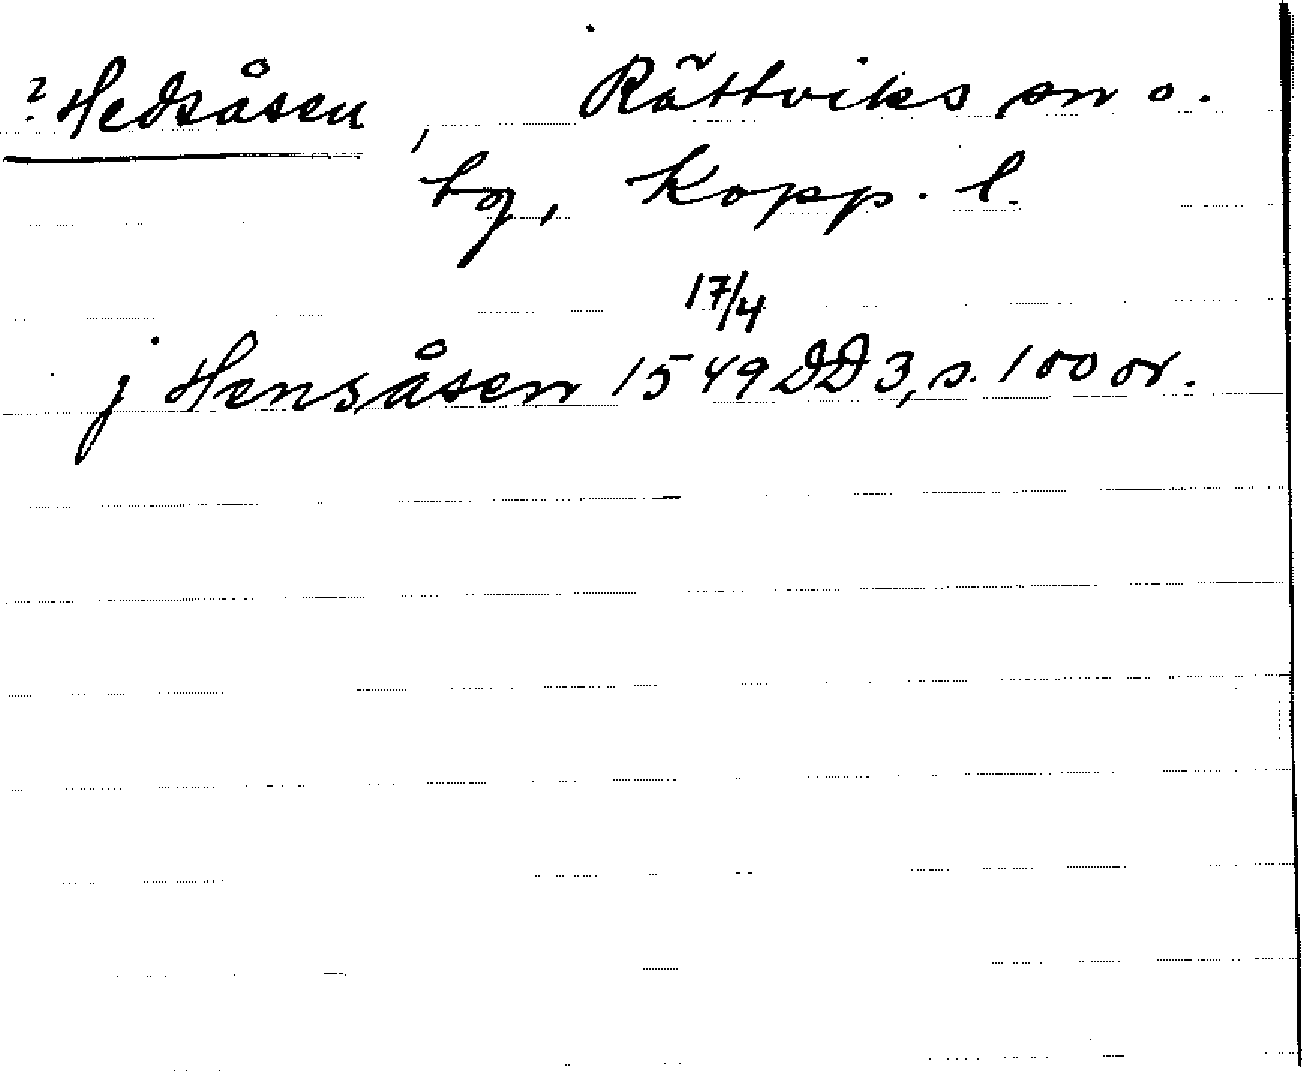 ? Hedsåsen, Rättviks sn o.
tg, Kopp. l.
17/4
j Hensåsen 1549 DD 3, s. 100 or.